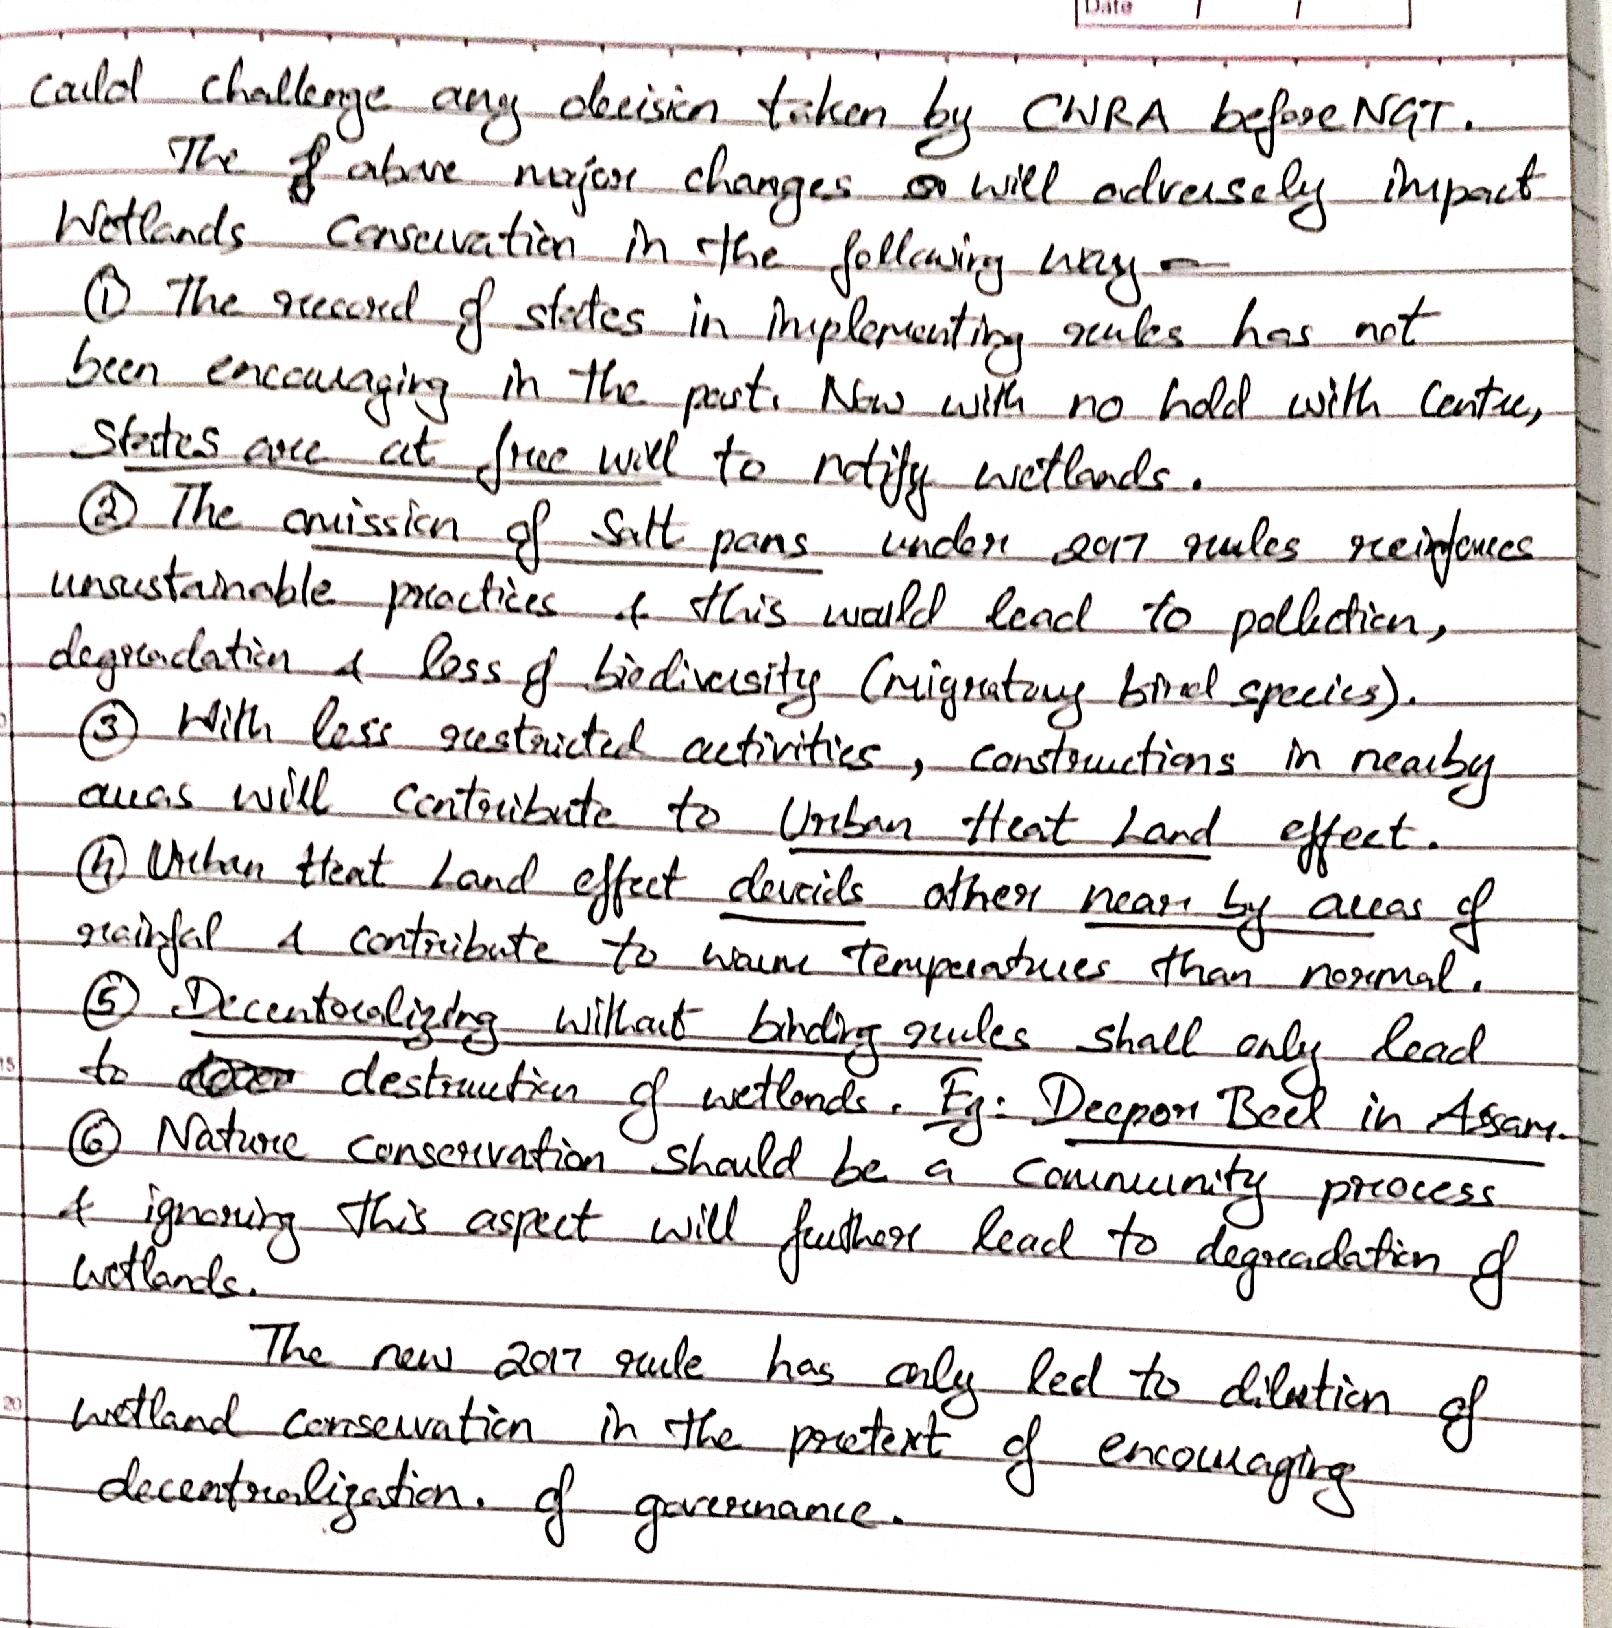 Date / /
could challenge any decision taken by CWRA before NGT.
The of above major changes will adversely impact
Wetlands Conservation in the following way -
① The record of states in implementing rules has not
been encouraging in the past. Now with no hold with Centre,
States are at free will to notify wetlands.
② The omission of Salt pans under 2017 rules reinforces
unsustainable practices & this would lead to pollution,
degradation & loss of biodiversity (migratory bird species).
③ With less restricted activities, constructions in nearby
areas will contribute to Urban Heat Land effect.
④ Urban Heat Land effect devoids other near by areas of
rainfal & contribute to warm temperatures than normal.
⑤ Decentralizing without binding rules shall only lead
to destruction of wetlands. Eg: Deepor Beel in Assam.
⑥ Nature conservation should be a community process
& ignoring this aspect will further lead to degradation of
wetlands.
The new 2017 rule has only led to dilution of
wetland conservation in the pretext of encouraging
decentralization. of governance.
15
20